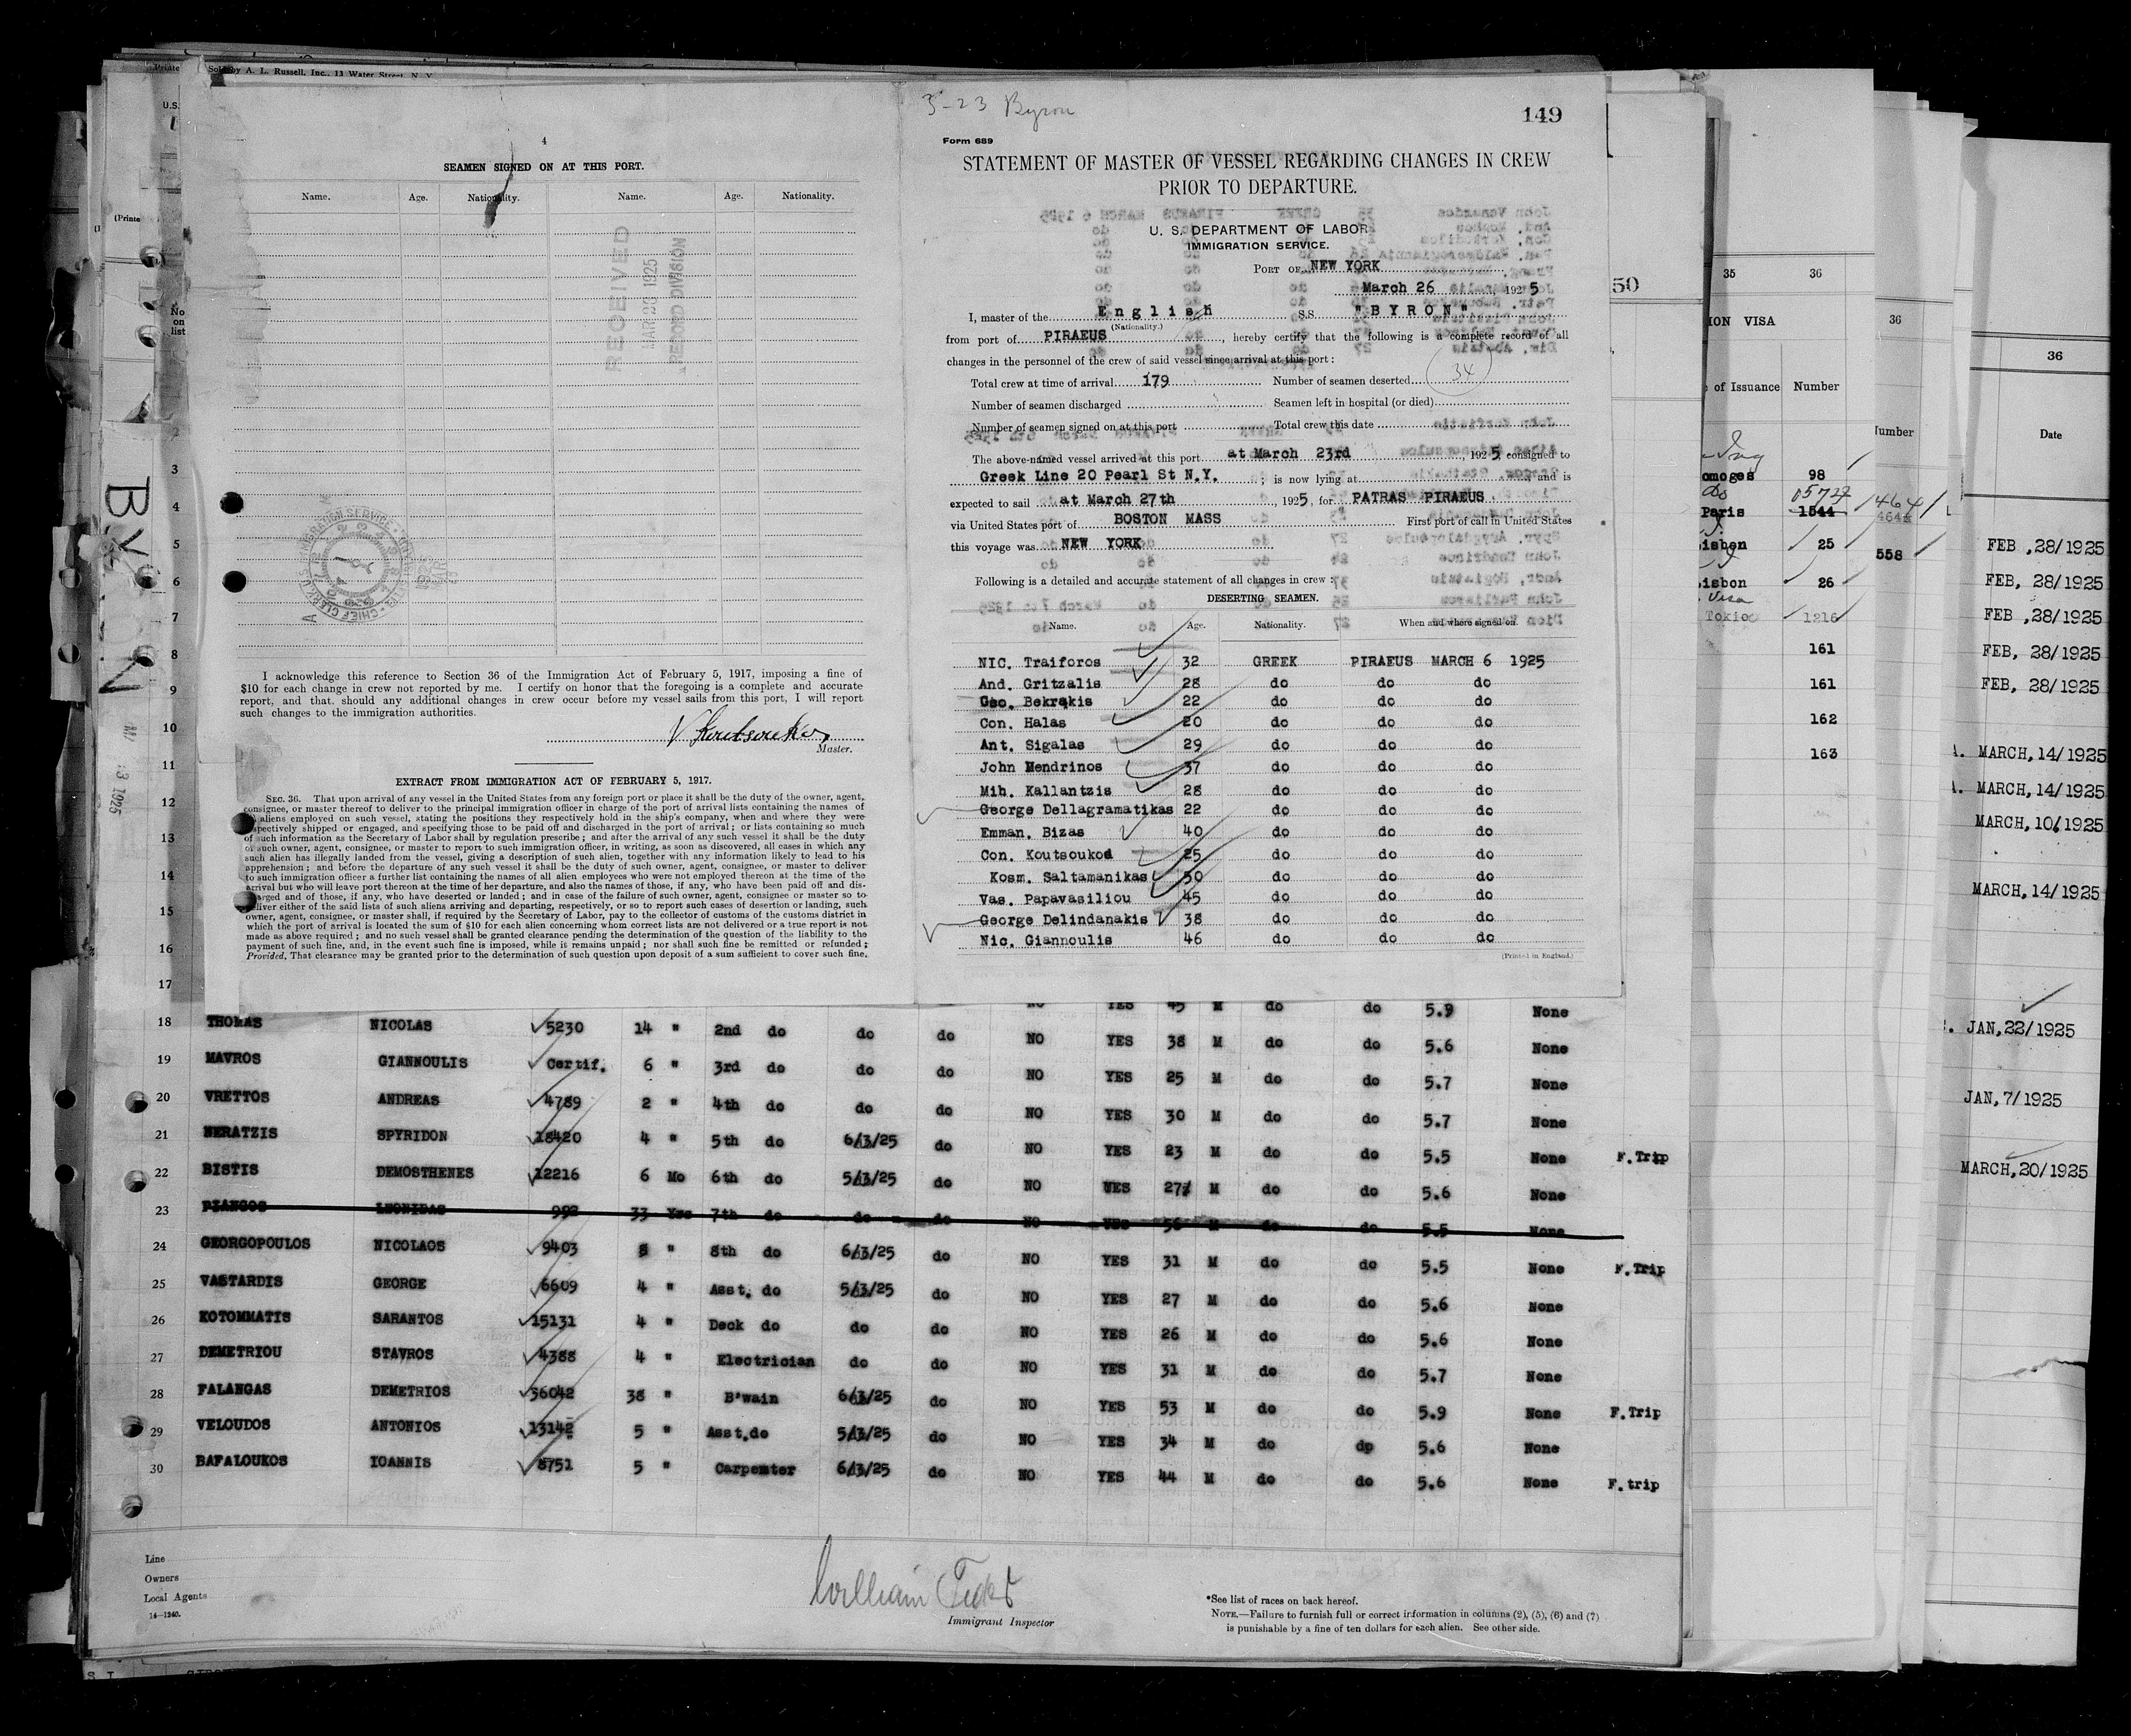 Sold by A. L. Russell, Inc., 13 Water Street, N. Y.
4
SEAMEN SIGNED ON AT THIS PORT.
Name. Age. Nationality. Name. Age. Nationality.
RECEIVED
MAR 26 1925
RECORD DIVISION
I acknowledge this reference to Section 36 of the Immigration Act of February 5, 1917, imposing a fine of
$10 for each change in crew not reported by me. I certify on honor that the foregoing is a complete and accurate
report, and that, should any additional changes in crew occur before my vessel sails from this port, I will report
such changes to the immigration authorities.
Master.
EXTRACT FROM IMMIGRATION ACT OF FEBRUARY 5, 1917.
SEC. 36. That upon arrival of any vessel in the United States from any foreign port or place it shall be the duty of the owner, agent,
consignee, or master thereof to deliver to the principal immigration officer in charge of the port of arrival lists containing the names of
aliens employed on such vessel, stating the positions they respectively hold in the ship's company, when and where they were
respectively shipped or engaged, and specifying those to be paid off and discharged in the port of arrival; or lists containing so much
of such information as the Secretary of Labor shall by regulation prescribe; and after the arrival of any such vessel it shall be the duty
of such owner, agent, consignee, or master to report to such immigration officer, in writing, as soon as discovered, all cases in which any
such alien has illegally landed from the vessel, giving a description of such alien, together with any information likely to lead to his
apprehension; and before the departure of any such vessel it shall be the duty of such owner, agent, consignee, or master to deliver
to such immigration officer a further list containing the names of all alien employees who were not employed thereon at the time of the
arrival but who will leave port thereon at the time of her departure, and also the names of those, if any, who have been paid off and dis-
charged and of those, if any, who have deserted or landed; and in case of the failure of such owner, agent, consignee or master so to
deliver either of the said lists of such aliens arriving and departing, respectively, or so to report such cases of desertion or landing, such
owner, agent, consignee, or master shall, if required by the Secretary of Labor, pay to the collector of customs of the customs district in
which the port of arrival is located the sum of $10 for each alien concerning whom correct lists are not delivered or a true report is not
made as above required; and no such vessel shall be granted clearance pending the determination of the question of the liability to the
payment of such fine, and, in the event such fine is imposed, while it remains unpaid; nor shall such fine be remitted or refunded;
Provided, That clearance may be granted prior to the determination of such question upon deposit of a sum sufficient to cover such fine.
3-23 Byron
149
Form 689
STATEMENT OF MASTER OF VESSEL REGARDING CHANGES IN CREW
PRIOR TO DEPARTURE.
U. S. DEPARTMENT OF LABOR
IMMIGRATION SERVICE.
PORT OF NEW YORK
March 26, 1925
I, master of the English S.S. "BYRON"
(Nationality.)
from port of PIRAEUS, hereby certify that the following is a complete record of all
changes in the personnel of the crew of said vessel since arrival at this port:
Total crew at time of arrival 179 Number of seamen deserted 34
Number of seamen discharged Seamen left in hospital (or died)
Number of seamen signed on at this port Total crew this date
The above-named vessel arrived at this port at March 23rd, 1925, consigned to
Greek Line 20 Pearl St N.Y.; is now lying at and is
expected to sail at March 27th 1925, for PATRAS PIRAEUS
via United States port of BOSTON MASS First port of call in United States
this voyage was NEW YORK
Following is a detailed and accurate statement of all changes in crew:
DESERTING SEAMEN.
Name. Age. Nationality. When and where signed on.
NIC. Traiforos 32 GREEK PIRAEUS MARCH 6 1925
And. Gritzalis 28 do do do
Geo. Bekrakis 22 do do do
Con. Halas 20 do do do
Ant. Sigalas 29 do do do
John Mendrinos 37 do do do
Mih. Kallantzis 28 do do do
George Dellagramatikas 22 do do do
Emman. Bizas 40 do do do
Con. Koutsoukod 25 do do do
Kosm. Saltamanikas 50 do do do
Vas. Papavasiliou 45 do do do
George Delindanakis 38 do do do
Nic. Giannoulis 46 do do do
(Printed in England.)
NO YES 45 M do do 5.9 None
18 THOMAS NICOLAS 5230 14 " 2nd do do do NO YES 38 M do do 5.6 None
19 MAVROS GIANNOULIS Certif. 6 " 3rd do do do NO YES 25 M do do 5.7 None
20 VRETTOS ANDREAS 4789 2 " 4th do do do NO YES 30 M do do 5.7 None
21 NERATZIS SPYRIDON 18420 4 " 5th do 6/3/25 do NO YES 23 M do do 5.5 None F.Trip
22 BISTIS DEMOSTHENES 12216 6 Mo 6th do 5/3/25 do NO YES 27 M do do 5.6 None
23 PIANGOS LEONIDAS 992 33 Yrs 7th do do do NO YES 56 M do do 5.5 None
24 GEORGOPOULOS NICOLAOS 9403 8 " 8th do 6/3/25 do NO YES 31 M do do 5.5 None F.Trip
25 VASTARDIS GEORGE 6609 4 " Asst. do 5/3/25 do NO YES 27 M do do 5.6 None
26 KOTOMMATIS SARANTOS 15131 4 " Deck do do do NO YES 26 M do do 5.6 None
27 DEMETRIOU STAVROS 4388 4 " Electrician do do NO YES 31 M do do 5.7 None
28 FALANGAS DEMETRIOS 36042 38 " B'wain 6/3/25 do NO YES 53 M do do 5.9 None F.Trip
29 VELOUDOS ANTONIOS 13142 5 " Asst.do 5/3/25 do NO YES 34 M do do 5.6 None
30 BAFALOUKOS IOANNIS 8751 5 " Carpenter 6/3/25 do NO YES 44 M do do 5.6 None F.trip
Line
Owners
Local Agents
14-1240.
William
Immigrant Inspector
*See list of races on back hereof.
NOTE.—Failure to furnish full or correct information in columns (2), (5), (6) and (7)
is punishable by a fine of ten dollars for each alien. See other side.
No
on
list
3
4
5
6
7
8
9
10
11
12
13
14
15
16
17
BYRON
50
35 36
ION VISA
of Issuance Number
omoges 98
Paris 1544
isbon 25
isbon 26
Visa
Tokio 1216
161
161
162
163
36
Number
558
36
Date
FEB ,28/1925
FEB, 28/1925
FEB ,28/1925
FEB, 28/1925
FEB, 28/1925
MARCH,14/1925
MARCH,14/1925
MARCH,10,1925
MARCH,14/1925
JAN,22/1925
JAN,7/1925
MARCH,20/1925